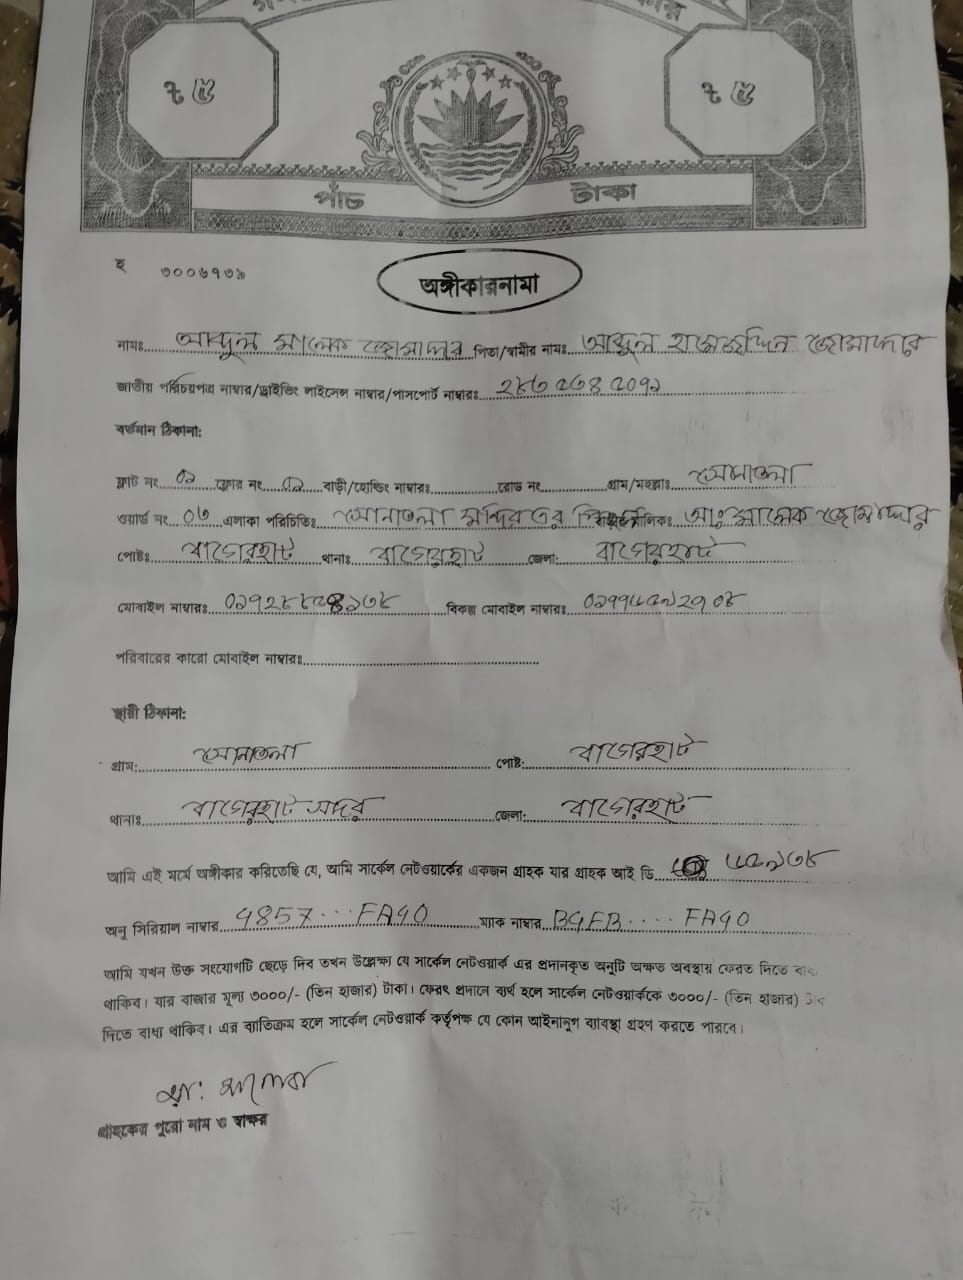 ৳ ৫ ৳ ৫
পাঁচ টাকা
হ ৩০০৬৭৩৯
অঙ্গীকারনামা
নামঃ আব্দুল মালেক জোমাদ্দার পিতা/স্বামীর নামঃ আব্দুল জোমাদ্দার
জাতীয় পরিচয়পত্র নাম্বার/ড্রাইভিং লাইসেন্স নাম্বার/পাসপোর্ট নাম্বারঃ
বর্তমান ঠিকানা:
ফ্লাট নং ০১ ফ্লোর নং ০১ বাড়ী/হোল্ডিং নাম্বারঃ রোড নং গ্রাম/মহল্লাঃ সোনাতলা
ওয়ার্ড নং ০৬ এলাকা পরিচিতিঃ সোনাতলা মন্দিরের মালিকঃ আঃ মালেক জোমাদ্দার
পোষ্টঃ বাগেরহাট থানাঃ বাগেরহাট জেলা: বাগেরহাট
মোবাইল নাম্বারঃ বিকল্প মোবাইল নাম্বারঃ
পরিবারের কারো মোবাইল নাম্বারঃ
স্থায়ী ঠিকানা:
গ্রাম: সোনাতলা পোষ্ট: বাগেরহাট
থানাঃ বাগেরহাট সদর জেলা: বাগেরহাট
আমি এই মর্মে অঙ্গীকার করিতেছি যে, আমি সার্কেল নেটওয়ার্কের একজন গ্রাহক যার গ্রাহক আই ডি
অনু সিরিয়াল নাম্বার 4857...FA40 ম্যাক নাম্বার B4FB.... FA40
আমি যখন উক্ত সংযোগটি ছেড়ে দিব তখন উল্লেক্ষ্য যে সার্কেল নেটওয়ার্ক এর প্রদানকৃত অনুটি অক্ষত অবস্থায় ফেরত দিতে
থাকিব। যার বাজার মূল্য ৩০০০/- (তিন হাজার) টাকা। ফেরৎ প্রদানে ব্যর্থ হলে সার্কেল নেটওয়ার্ককে ৩০০০/- (তিন হাজার)
দিতে বাধ্য থাকিব। এর ব্যাতিক্রম হলে সার্কেল নেটওয়ার্ক কর্তৃপক্ষ যে কোন আইনানুগ ব্যাবস্থা গ্রহণ করতে পারবে।
আঃ মালেক
গ্রাহকের পুরো নাম ও স্বাক্ষর